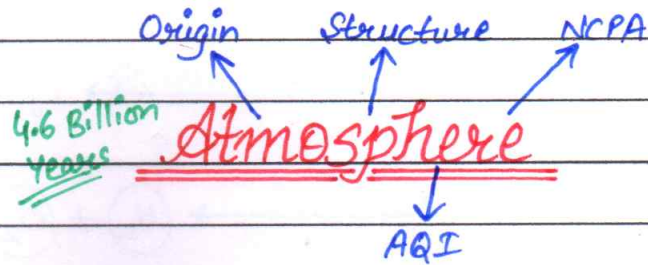 Origin Structure NCPA
4.6 Billion
years
Atmosphere
AQI